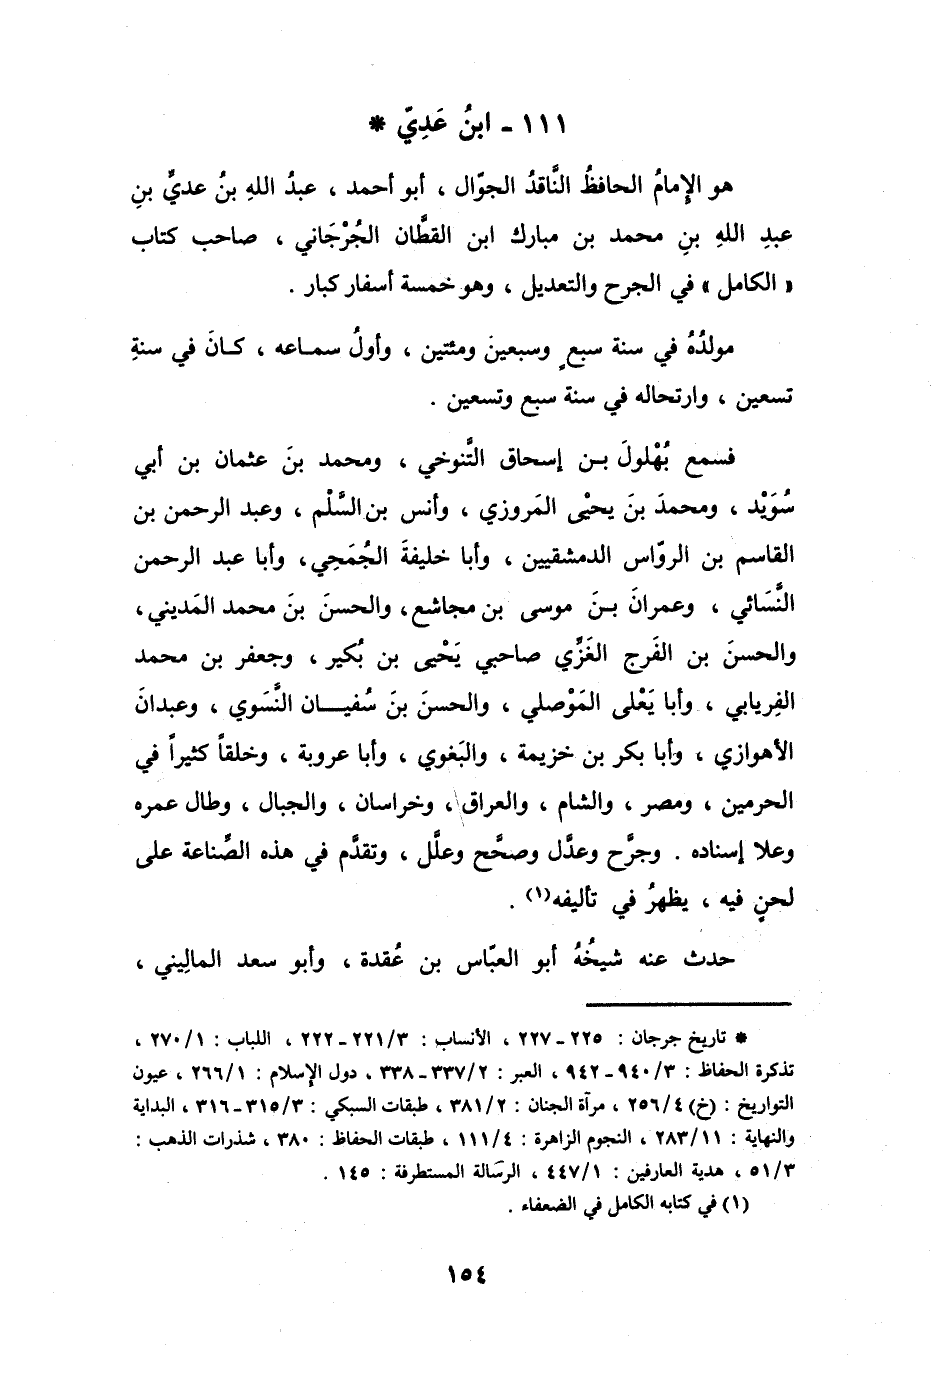 ١١١ - ابنُ عَدِيّ *
هو الإِمامُ الحافظُ النَّاقدُ الجوّال ، أبو أحمد ، عبدُ اللهِ بنُ عديٍّ بنِ
عبدِ اللهِ بنِ محمد بن مبارك ابن القطَّان الجُرْجَاني ، صاحب كتاب
« الكامل » في الجرح والتعديل ، وهو خمسة أسفار كبار .
مولدُهُ في سنة سبعٍ وسبعينَ ومئتين ، وأولُ سماعه ، كانَ في سنةِ
تسعين ، وارتحاله في سنة سبع وتسعين .
فسمع بُهْلولَ بن إسحاق التَّنوخي ، ومحمد بنَ عثمان بن أبي
سُوَيْد ، ومحمدَ بنَ يحيْى المَروزي ، وأنس بن السَّلْم ، وعبد الرحمن بن
القاسم بن الروّاس الدمشقيين ، وأبا خليفةَ الجُمَحِي، وأبا عبد الرحمن
النَّسَائي ، وعمرانَ بنَ موسى بن مجاشع، والحسنَ بنَ محمد المَديني،
والحسنَ بن الفَرج الغَزِّي صاحبي يَحْيى بن بُكير ، وجعفر بن محمد
الفِريابي ، وأبا يَعْلى المَوْصلي ، والحسنَ بنَ سُفيان النَّسَوي ، وعبدانَ
الأهوازي ، وأبا بكر بن خزيمة ، والبَغوي ، وأبا عروبة ، وخلقاً كثيراً في
الحرمين ، ومصر ، والشام ، والعراق ، وخراسان ، والجبال ، وطال عمره
وعلا إسناده . وجرَّح وعدَّل وصحَّح وعلَّل ، وتقدَّم في هذه الصِّناعة على
لحنٍ فيه ، يظهرُ في تأليفه(١) .
حدث عنه شيخُهُ أبو العبّاس بن عُقدة ، وأبو سعد المالِيني ،
* تاريخ جرجان : ٢٢٥ - ٢٢٧ ، الأنساب : ٢٢١/٣ - ٢٢٢ ، اللباب : ٢٧٠/١ ،
تذكرة الحفاظ : ٩٤٠/٣ - ٩٤٢ ، العبر : ٣٣٧/٢ - ٣٣٨ ، دول الإسلام : ٢٦٦/١ ، عيون
التواريخ : (خ) ٢٥٦/٤ ، مرآة الجنان : ٣٨١/٢ ، طبقات السبكي : ٣١٥/٣ - ٣١٦ ، البداية
والنهاية : ٢٨٣/١١ ، النجوم الزاهرة : ١١١/٤ ، طبقات الحفاظ : ٣٨٠ ، شذرات الذهب :
٥١/٣ ، هدية العارفين : ٤٤٧/١ ، الرسالة المستطرفة : ١٤٥ .
(١) في كتابه الكامل في الضعفاء .
١٥٤